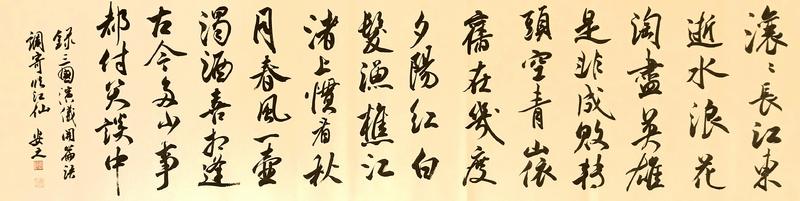 滾〻長江東
逝水浪花
淘盡英雄
是非成敗轉
頭空青山依
舊在幾度
夕陽紅白
髮漁樵江
渚上慣看秋
月春風一壺
濁酒喜相逢
古今多少事
都付笑談中
錄三國演儀開篇語
調寄临江仙 安之